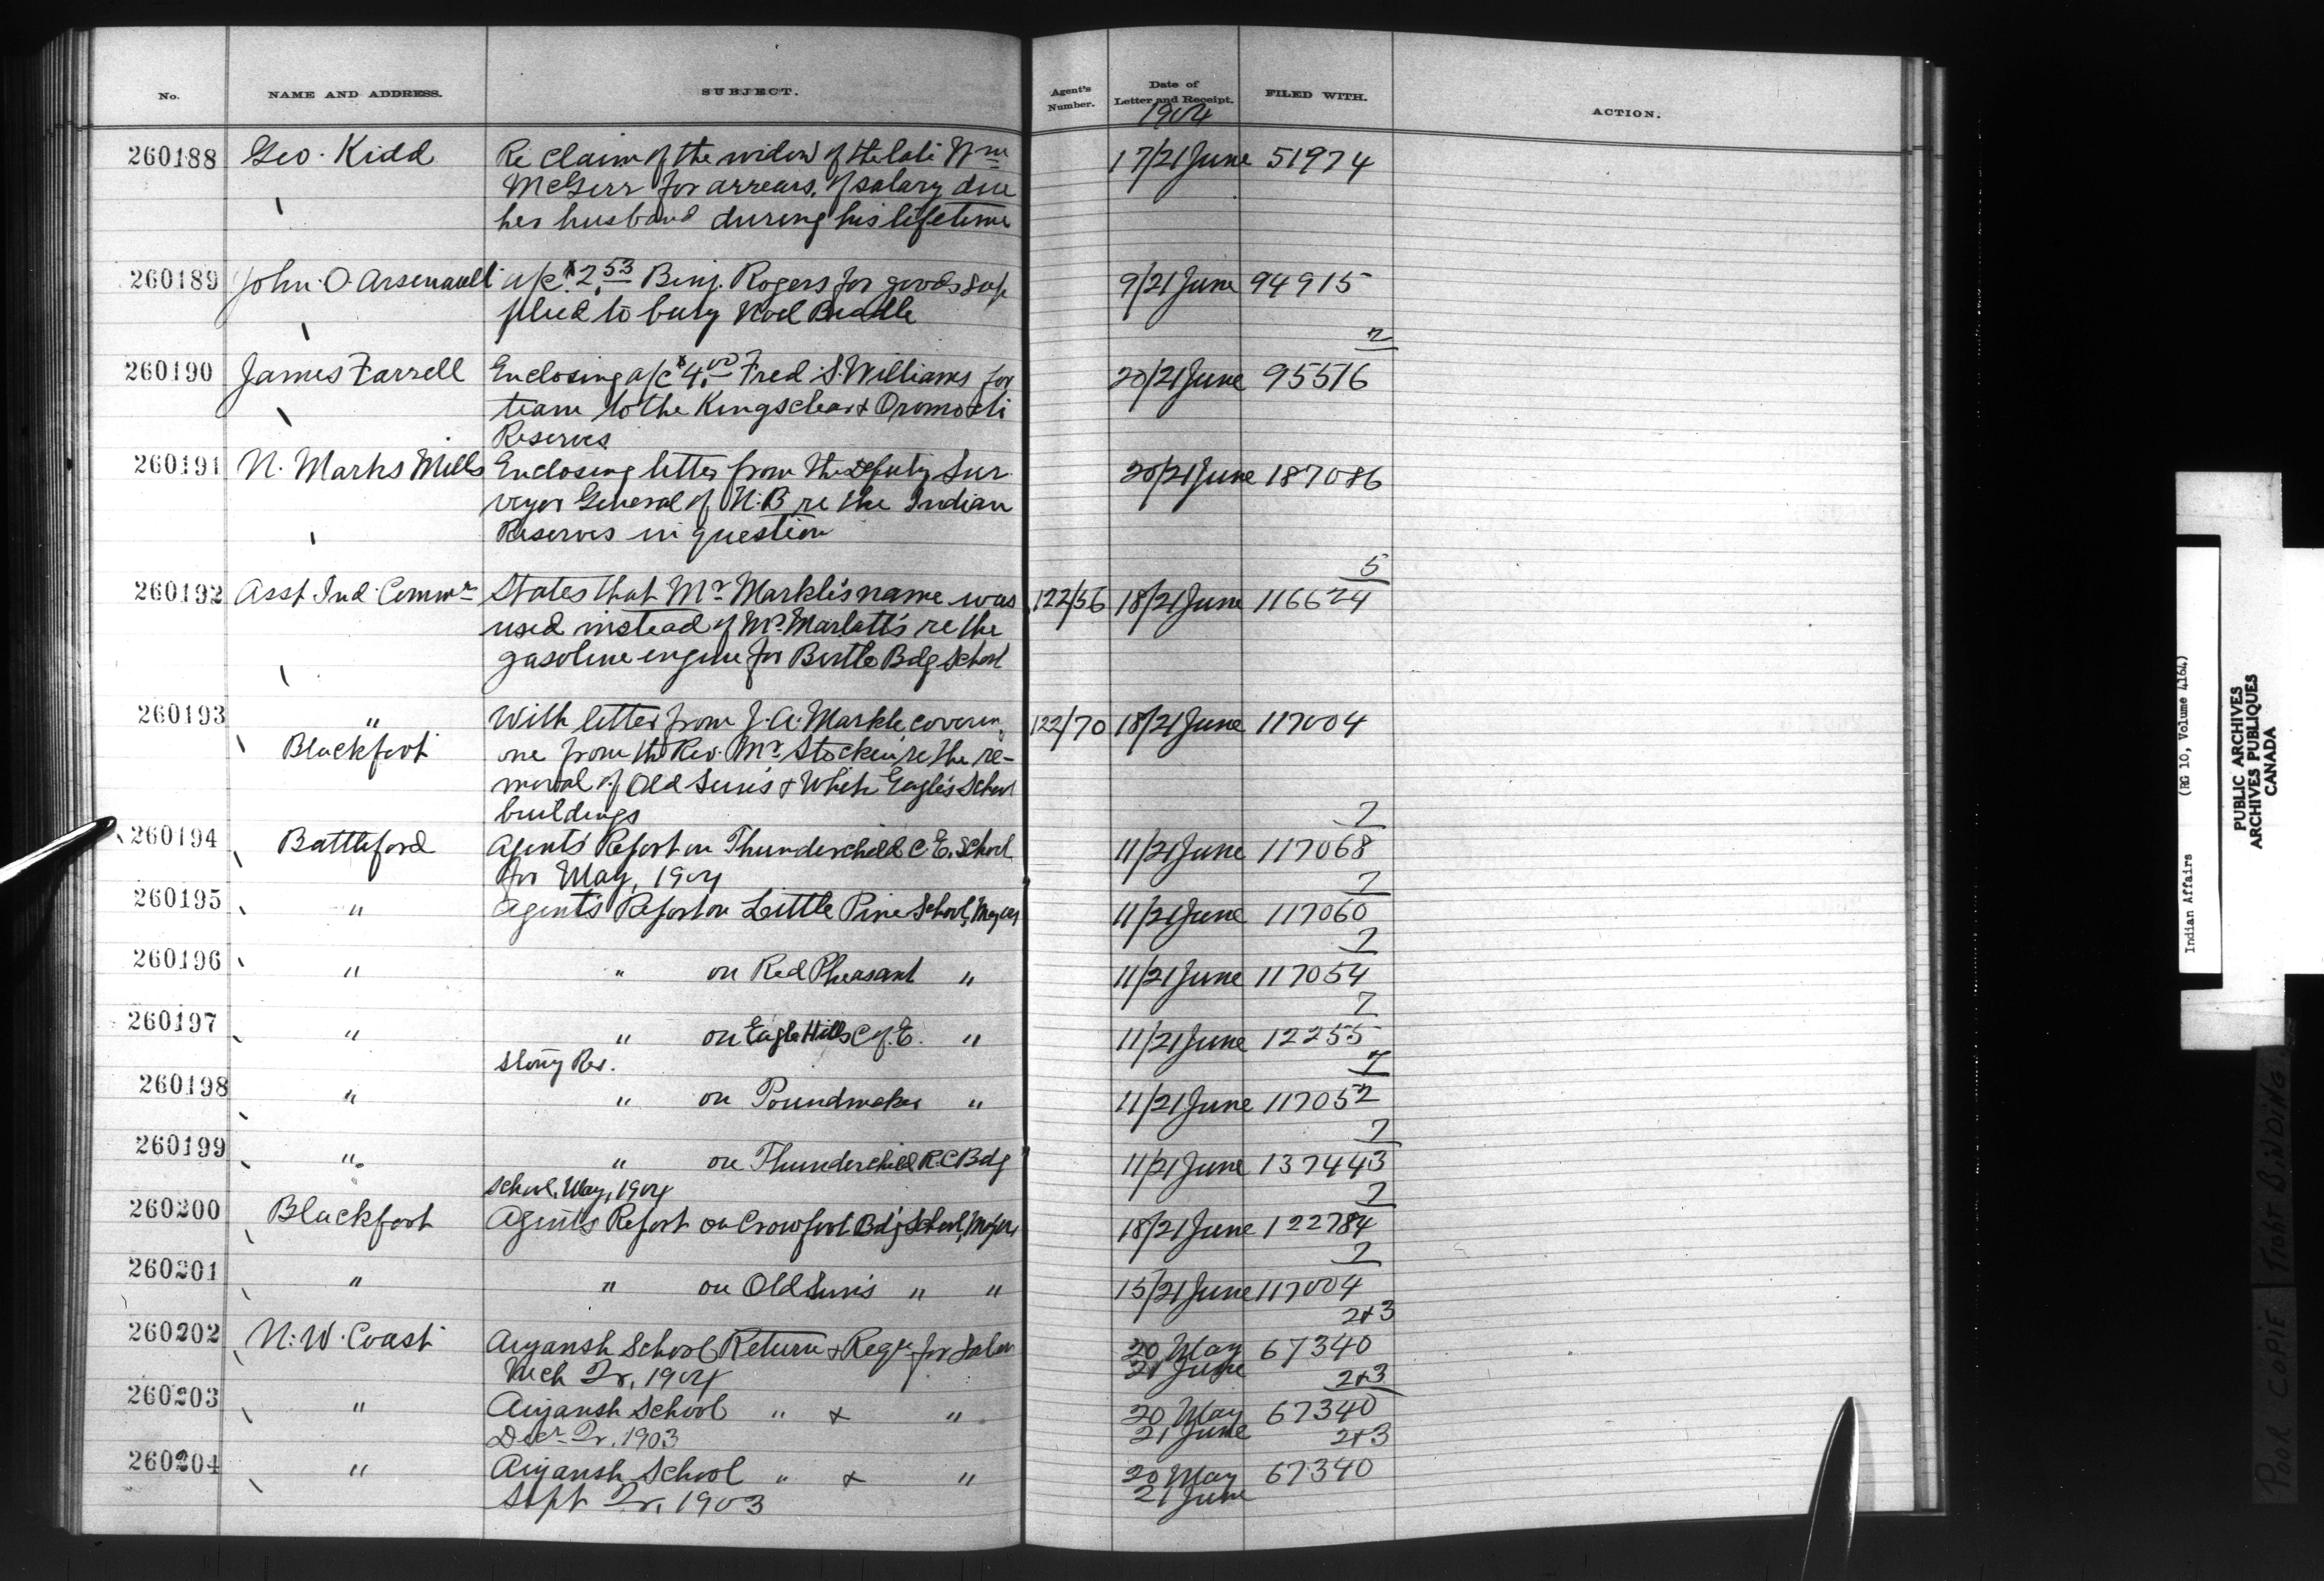 No. NAME AND ADDRESS. SUBJECT. Agent's Number. Date of Letter and Receipt. FILED WITH. ACTION.
1904
260188 Geo. Kidd Re claim of the widow of the late Wm 17/21 June 51974
McGirr for arrears of salary due
her husband during his lifetime
260189 John O. Arsenault a/c $2.53 Benj. Rogers for goods sup 9/21 June 94915
plied to bury Noel Beadle
2
260190 James Farrell Enclosing a/c $4.00 Fred S. Williams for 20/21 June 95516
team to the Kingsclear & Oromocto
Reserves
260191 N. Marks Mills Enclosing letter from the Deputy Sur 20/21 June 187086
veyor General of N.B re the Indian
Reserves in question
5
260192 Asst Ind Commr States that Mr Markle's name was 122/56 18/21 June 116624
used instead of Mr Marlatt's re the
gasoline engine for Birtle Bdg School
260193 " With letter from J. A. Markle coverin 122/70 18/21 June 117004
Blackfoot one from the Rev. Mr Stocken re the re-
moval of Old Sun's & White Eagle's School
buildings
7
260194 Battleford Agents Report on Thunderchild C. E. School 11/21 June 117068
for May, 1904
7
260195 " Agent's Report on Little Pine School, May 04 11/21 June 117060
7
260196 " " on Red Pheasant " 11/21 June 117054
7
260197 " " on Eagle Hills C of E. " 11/21 June 12255
Stony Res.
7
260198 " " on Poundmaker " 11/21 June 117052
7
260199 " " on Thunderchild R.C Bdg 11/21 June 137443
School, May, 1904
7
260200 Blackfoot Agents Report on Crowfoot Bdg School, May 04 18/21 June 122784
7
260201 " " on Old Sun's " " 15/21 June 117004
2+3
260202 N. W. Coast Aiyansh School Return & Regr for 20 May 67340
Mch Qr, 1904 21 June
2+3
260203 " Aiyansh School " & " 20 May 67340
Decr Qr. 1903 21 June
2+3
260204 " Aiyansh School " & " 20 May 67340
Sept Qr, 1903 21 June
Indian Affairs (RG 10, Volume 4164)
PUBLIC ARCHIVES
ARCHIVES PUBLIQUES
CANADA
POOR COPIE TIGHT BINDING